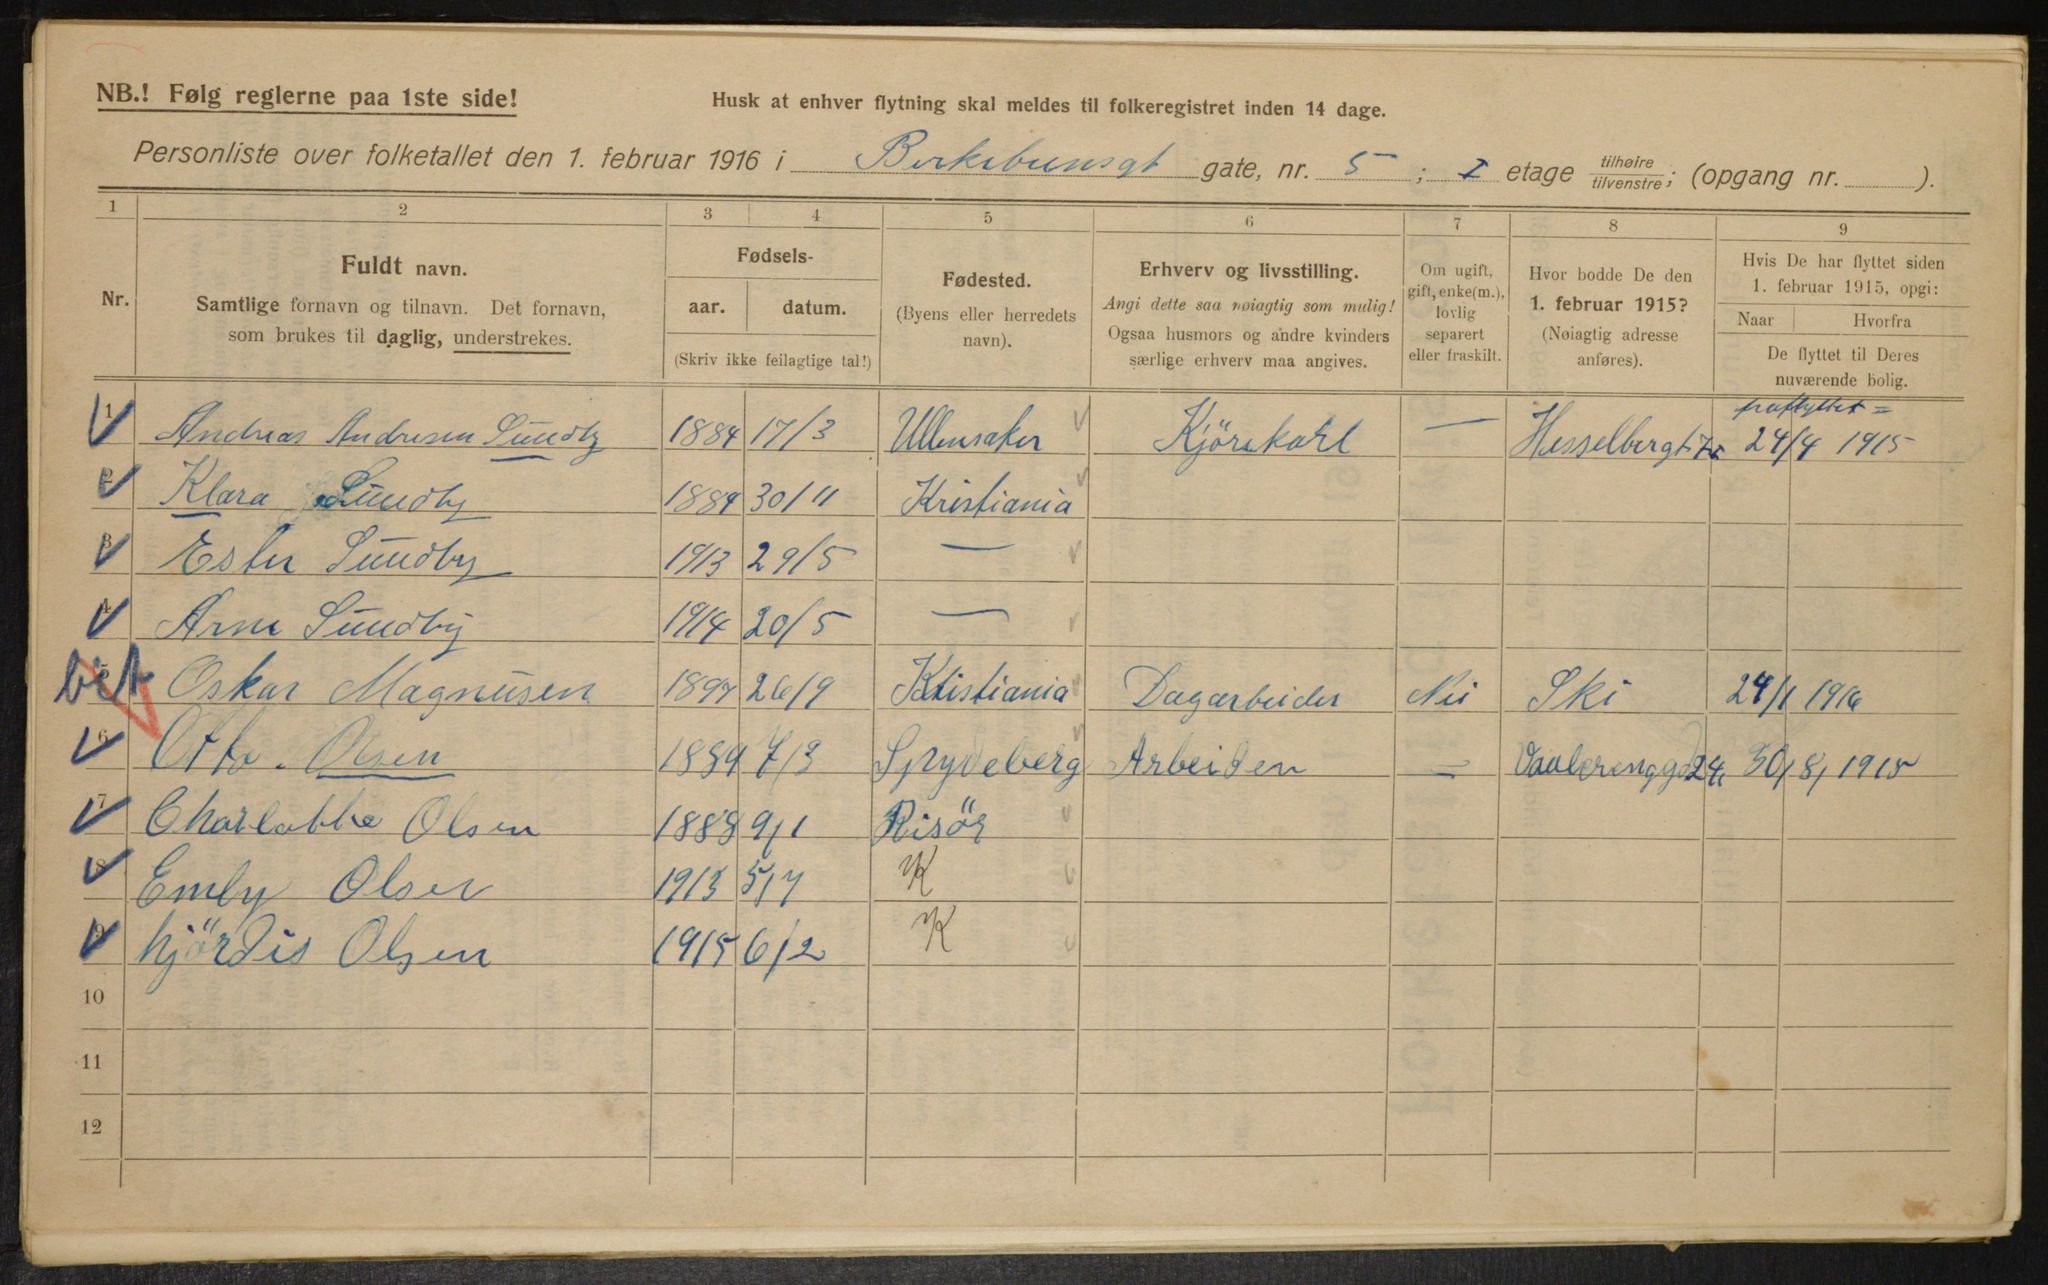 NB.! Følg reglerne paa 1ste side!
Husk at enhver flytning skal meldes til folkeregistret inden 14 dage.
Personliste over folketallet den 1. februar 1916 i Birkebunsgt gate, nr. 5; I etage tilhøire/tilvenstre; (opgang nr. ).
1 2 3 4 5 6 7 8 9
Nr.
Fuldt navn.
Samtlige fornavn og tilnavn. Det fornavn,
som brukes til daglig, understrekes.
Fødsels-
aar. datum.
(Skriv ikke feilagtige tal!)
Fødested.
(Byens eller herredets
navn).
Erhverv og livsstilling.
Angi dette saa nøiagtig som mulig!
Ogsaa husmors og andre kvinders
særlige erhverv maa angives.
Om ugift,
gift, enke(m.),
lovlig
separert
eller fraskilt.
Hvor bodde De den
1. februar 1915?
(Nøiagtig adresse
anføres).
Hvis De har flyttet siden
1. februar 1915, opgi:
Naar Hvorfra
De flyttet til Deres
nuværende bolig.
fraflyttet =
1 Andreas Andresen Sundby 1884 17/3 Ullensaker Kjörekarl — Hesselbergt 24/4 1915
2 Klara Sundby 1884 30/11 Kristiania
3 Ester Sundby 1913 29/5 —
4 Arne Sundby 1914 20/5 —
5 Oskar Magnusen 1897 26/9 Kristiania Dagarbeider Nei Ski 24/1 1916
6 Otto Olsen 1889 7/3 Spydeberg Arbeider = Vaalerenggd 24, 30/8, 1915
7 Charlotte Olsen 1888 9/1 Risör
8 Emly Olsen 1913 5/7 K
9 hjördis Olsen 1915 6/2 K
10
11
12